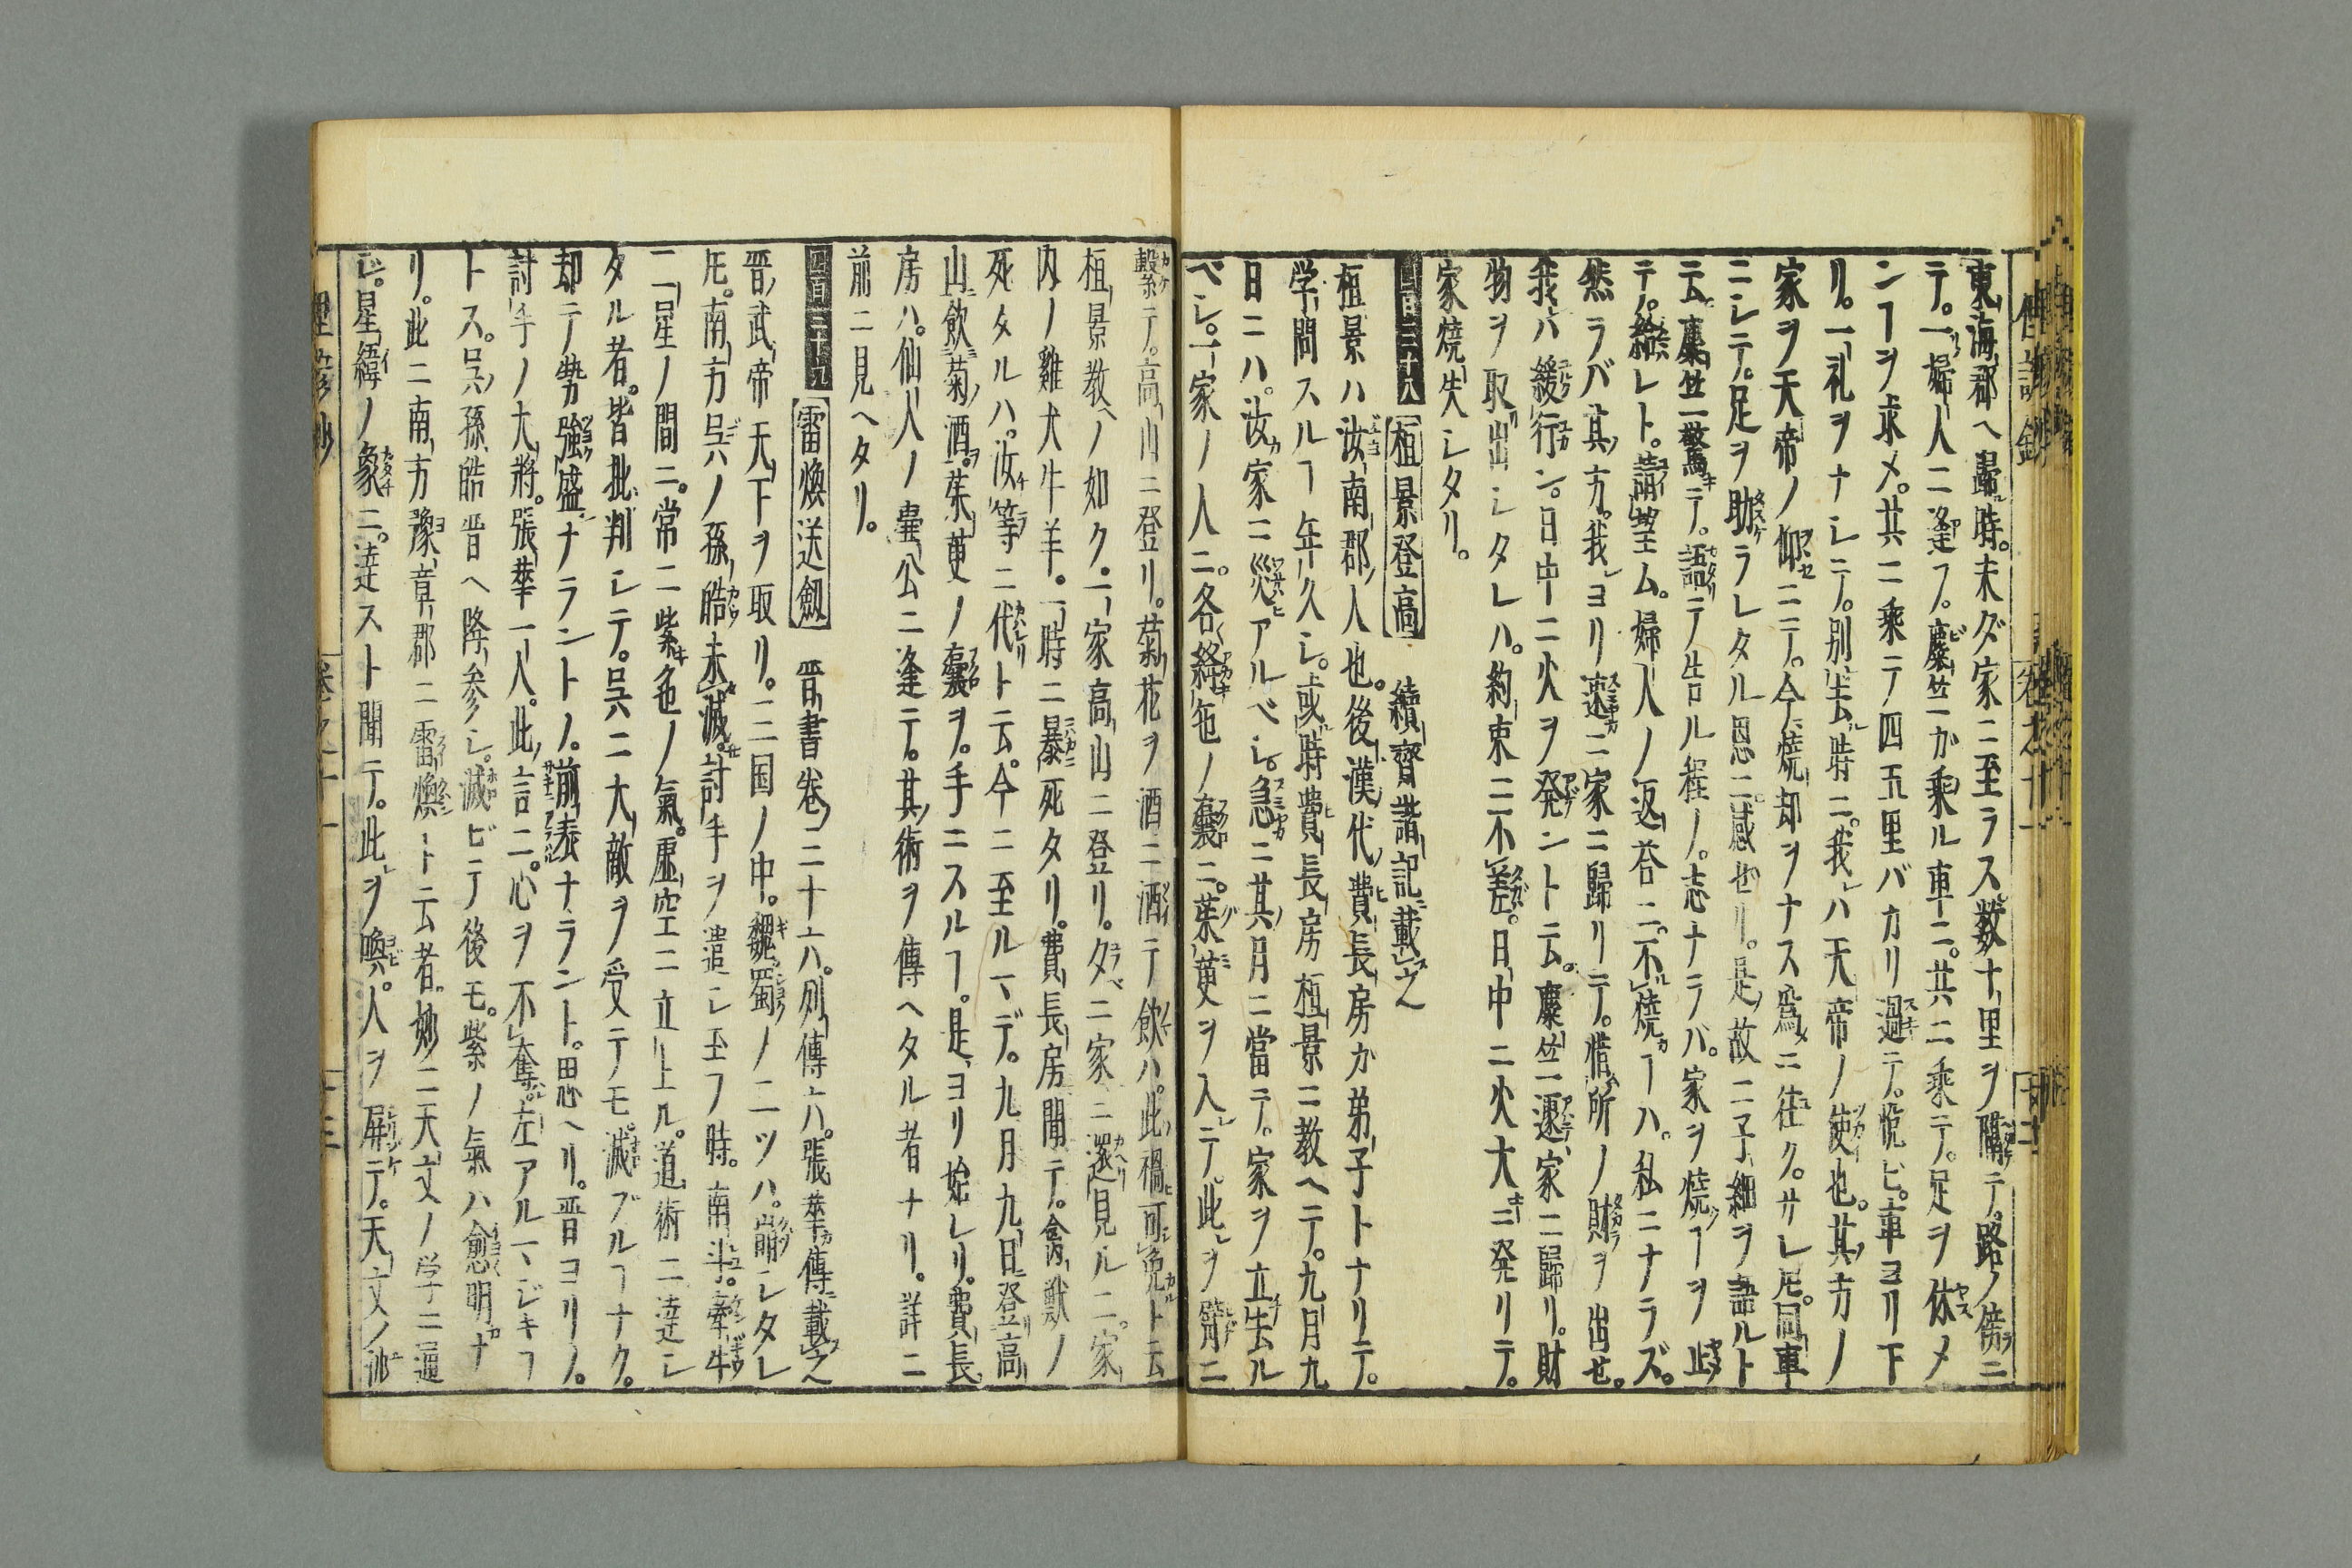 東海郡ヘ歸時。未ダ家ニ至ラス数十里ヲ隔テ。路ノ傍ニ
テ。一婦人ニ逢フ。麋竺カ乗ル車ニ。共ニ乗テ。足ヲ休メ
ンヿヲ求メ。共ニ乗テ四五里バカリ過テ。悦ビ。車ヨリ下
リ。一礼ヲナシテ。別去時ニ。我ハ天帝ノ使也。其方ノ
家ヲ天帝ノ仰ニテ。今燒却ヲナス為ニ往ク。サレ𪜈。同車
ニシテ。足ヲ助ラレタル恩ニ感セリ。是故ニ子細ヲ語ルト
云。麋竺驚テ。語テ告ル程ノ。志ナラバ。家ヲ燒ヿヲ止
テ給レト。請望ム。婦人ノ返荅ニ。不燒ヿハ。私ニナラズ。
然ラバ其方。我ヨリ速ニ家ニ歸リテ。惜所ノ財ヲ出せ。
我ハ緩行ン。日中ニ火ヲ発ントト云。麋竺遽家ニ歸リ。財
物ヲ取出シタレハ。約束ニ不差。日中ニ火大ニ発リテ。
家燒失シタリ。
桓景登高 續齊諧記載之
桓景ハ汝南郡人也。後漢代費長房カ弟子トナリテ。
学問スルヿ年久シ。或時費長房桓景ニ教ヘテ。九月九
日ニハ。汝家ニ災アルベシ。急ニ其月ニ當テ。家ヲ立去ル
ベシ。一家ノ人ニ。各絳色ノ囊ニ。茱萸ヲ入テ。此ヲ臂ニ
繫テ。高山ニ登リ。菊花ヲ酒ニ洒テ飲ハ。此禍可免ト云
桓景教ノ如ク。一家高山ニ登リ。夕ニ家ニ還見ルニ。家
内ノ雞犬牛羊。一時ニ暴死タリ。費長房聞テ。禽獣ノ
死タルハ。汝等ニ代ト云。今ニ至ルマデ。九月九日登高
山飲菊酒。茱萸ノ囊ヲ。手ニスルヿ。是ヨリ始レリ。費長
房ハ。仙人ノ壷公ニ逢テ。其術ヲ傳ヘタル者ナリ。詳ニ
前ニ見ヘタリ。
四百三十九 雷煥送劔 晋書巻三十六。列傳六。張華傳載之
晋武帝天下ヲ取リ。三国ノ中。魏蜀ノ二ツハ。崩レタレ
𪜈。南方呉ノ孫皓未滅。討手ヲ遣シ玉フ時。南斗。牽牛
二星ノ間ニ。常ニ紫色ノ氣。虚空ニ立上ル。道術ニ達シ
タル者。皆批判シテ。呉ニ大敵ヲ受テモ。滅ブルヿナク。
却テ勢強盛ナラントノ。前表ナラント。思ヘリ。晋ヨリノ。
討手ノ大將。張華一人。此言ニ。心ヲ不奪。左アルマジキヿ
トス。呉孫皓晋ヘ降参シ。滅ビテ後モ。紫ノ氣ハ愈明ナ
リ。此ニ南方豫章郡ニ雷煥ト云者。妙ニ天文ノ学ニ通
ジ。星緯ノ象ニ。達スト聞テ。此ヲ喚。人ヲ屏テ。天文ノ沙